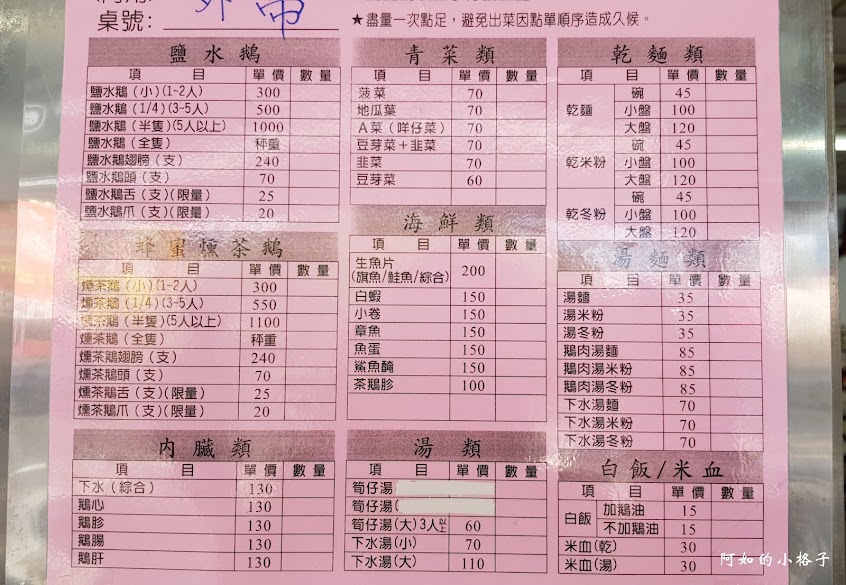 桌號:
★盡量一次點足,避免出菜因點單順序造成久候。
鹽水鵝
項 目 單價 數量
鹽水鵝(小)(1-2人) 300
鹽水鵝(1/4)(3-5人) 500
鹽水鵝(半隻)(5人以上) 1000
鹽水鵝(全隻) 秤重
鹽水鵝翅膀(支) 240
鹽水鵝頭(支) 70
鹽水鵝舌(支)(限量) 25
鹽水鵝爪(支)(限量) 20
蜂蜜燻茶鵝
項 目 單價 數量
燻茶鵝(小)(1-2人) 300
燻茶鵝(1/4)(3-5人) 550
燻茶鵝(半隻)(5人以上) 1100
燻茶鵝(全隻) 秤重
燻茶鵝翅膀(支) 240
燻茶鵝頭(支) 70
燻茶鵝舌(支)(限量) 25
燻茶鵝爪(支)(限量) 20
內臟類
項 目 單價 數量
下水(綜合) 130
鵝心 130
鵝胗 130
鵝腸 130
鵝肝 130
青菜類
項 目 單價 數量
菠菜 70
地瓜葉 70
A菜(咩仔菜) 70
豆芽菜+韭菜 70
韭菜 70
豆芽菜 60
海鮮類
項 目 單價 數量
生魚片
(旗魚/鮭魚/綜合) 200
白蝦 150
小卷 150
章魚 150
魚蛋 150
鯊魚醃 150
茶鵝胗 100
湯類
項 目 單價 數量
筍仔湯
筍仔湯(
筍仔湯(大)3人以上 60
下水湯(小) 70
下水湯(大) 110
乾麵類
項 目 單價 數量
乾麵 碗 45
小盤 100
大盤 120
乾米粉 碗 45
小盤 100
大盤 120
乾冬粉 碗 45
小盤 100
大盤 120
湯麵類
項 目 單價 數量
湯麵 35
湯米粉 35
湯冬粉 35
鵝肉湯麵 85
鵝肉湯米粉 85
鵝肉湯冬粉 85
下水湯麵 70
下水湯米粉 70
下水湯冬粉 70
白飯/米血
項 目 單價 數量
白飯 加鵝油 15
不加鵝油 15
米血(乾) 30
米血(湯) 30
阿如的小格子